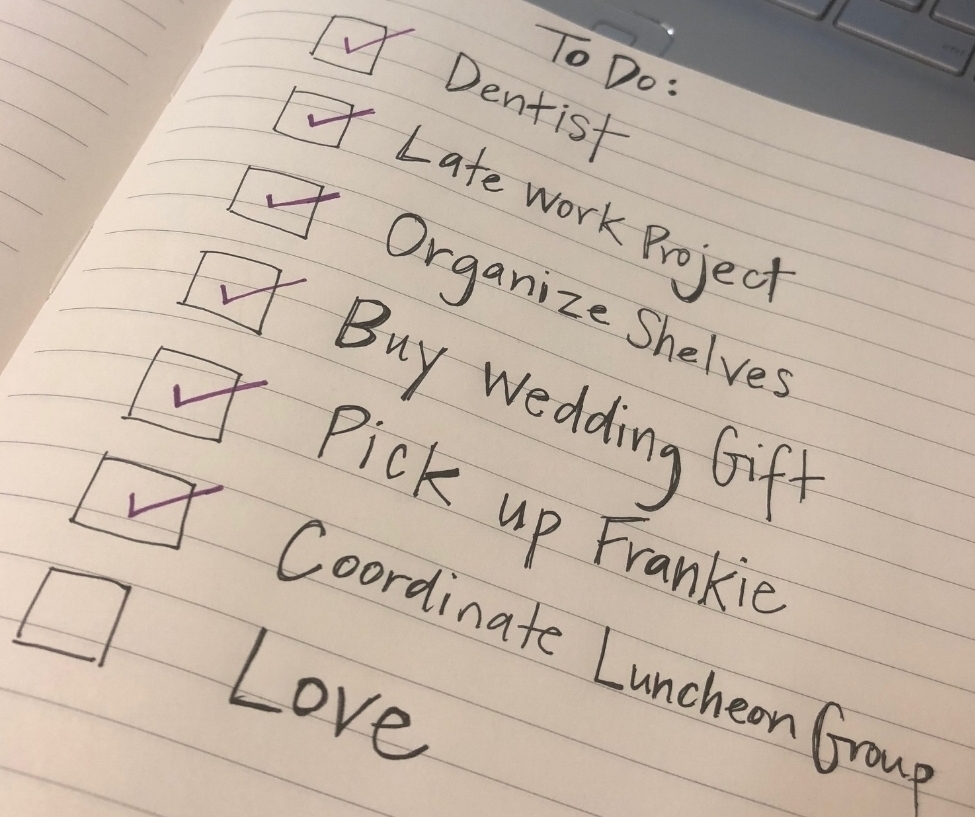 To Do:
Dentist
Late Work Project
Organize Shelves
Buy Wedding Gift
Pick up Frankie
Coordinate Luncheon Group
Love